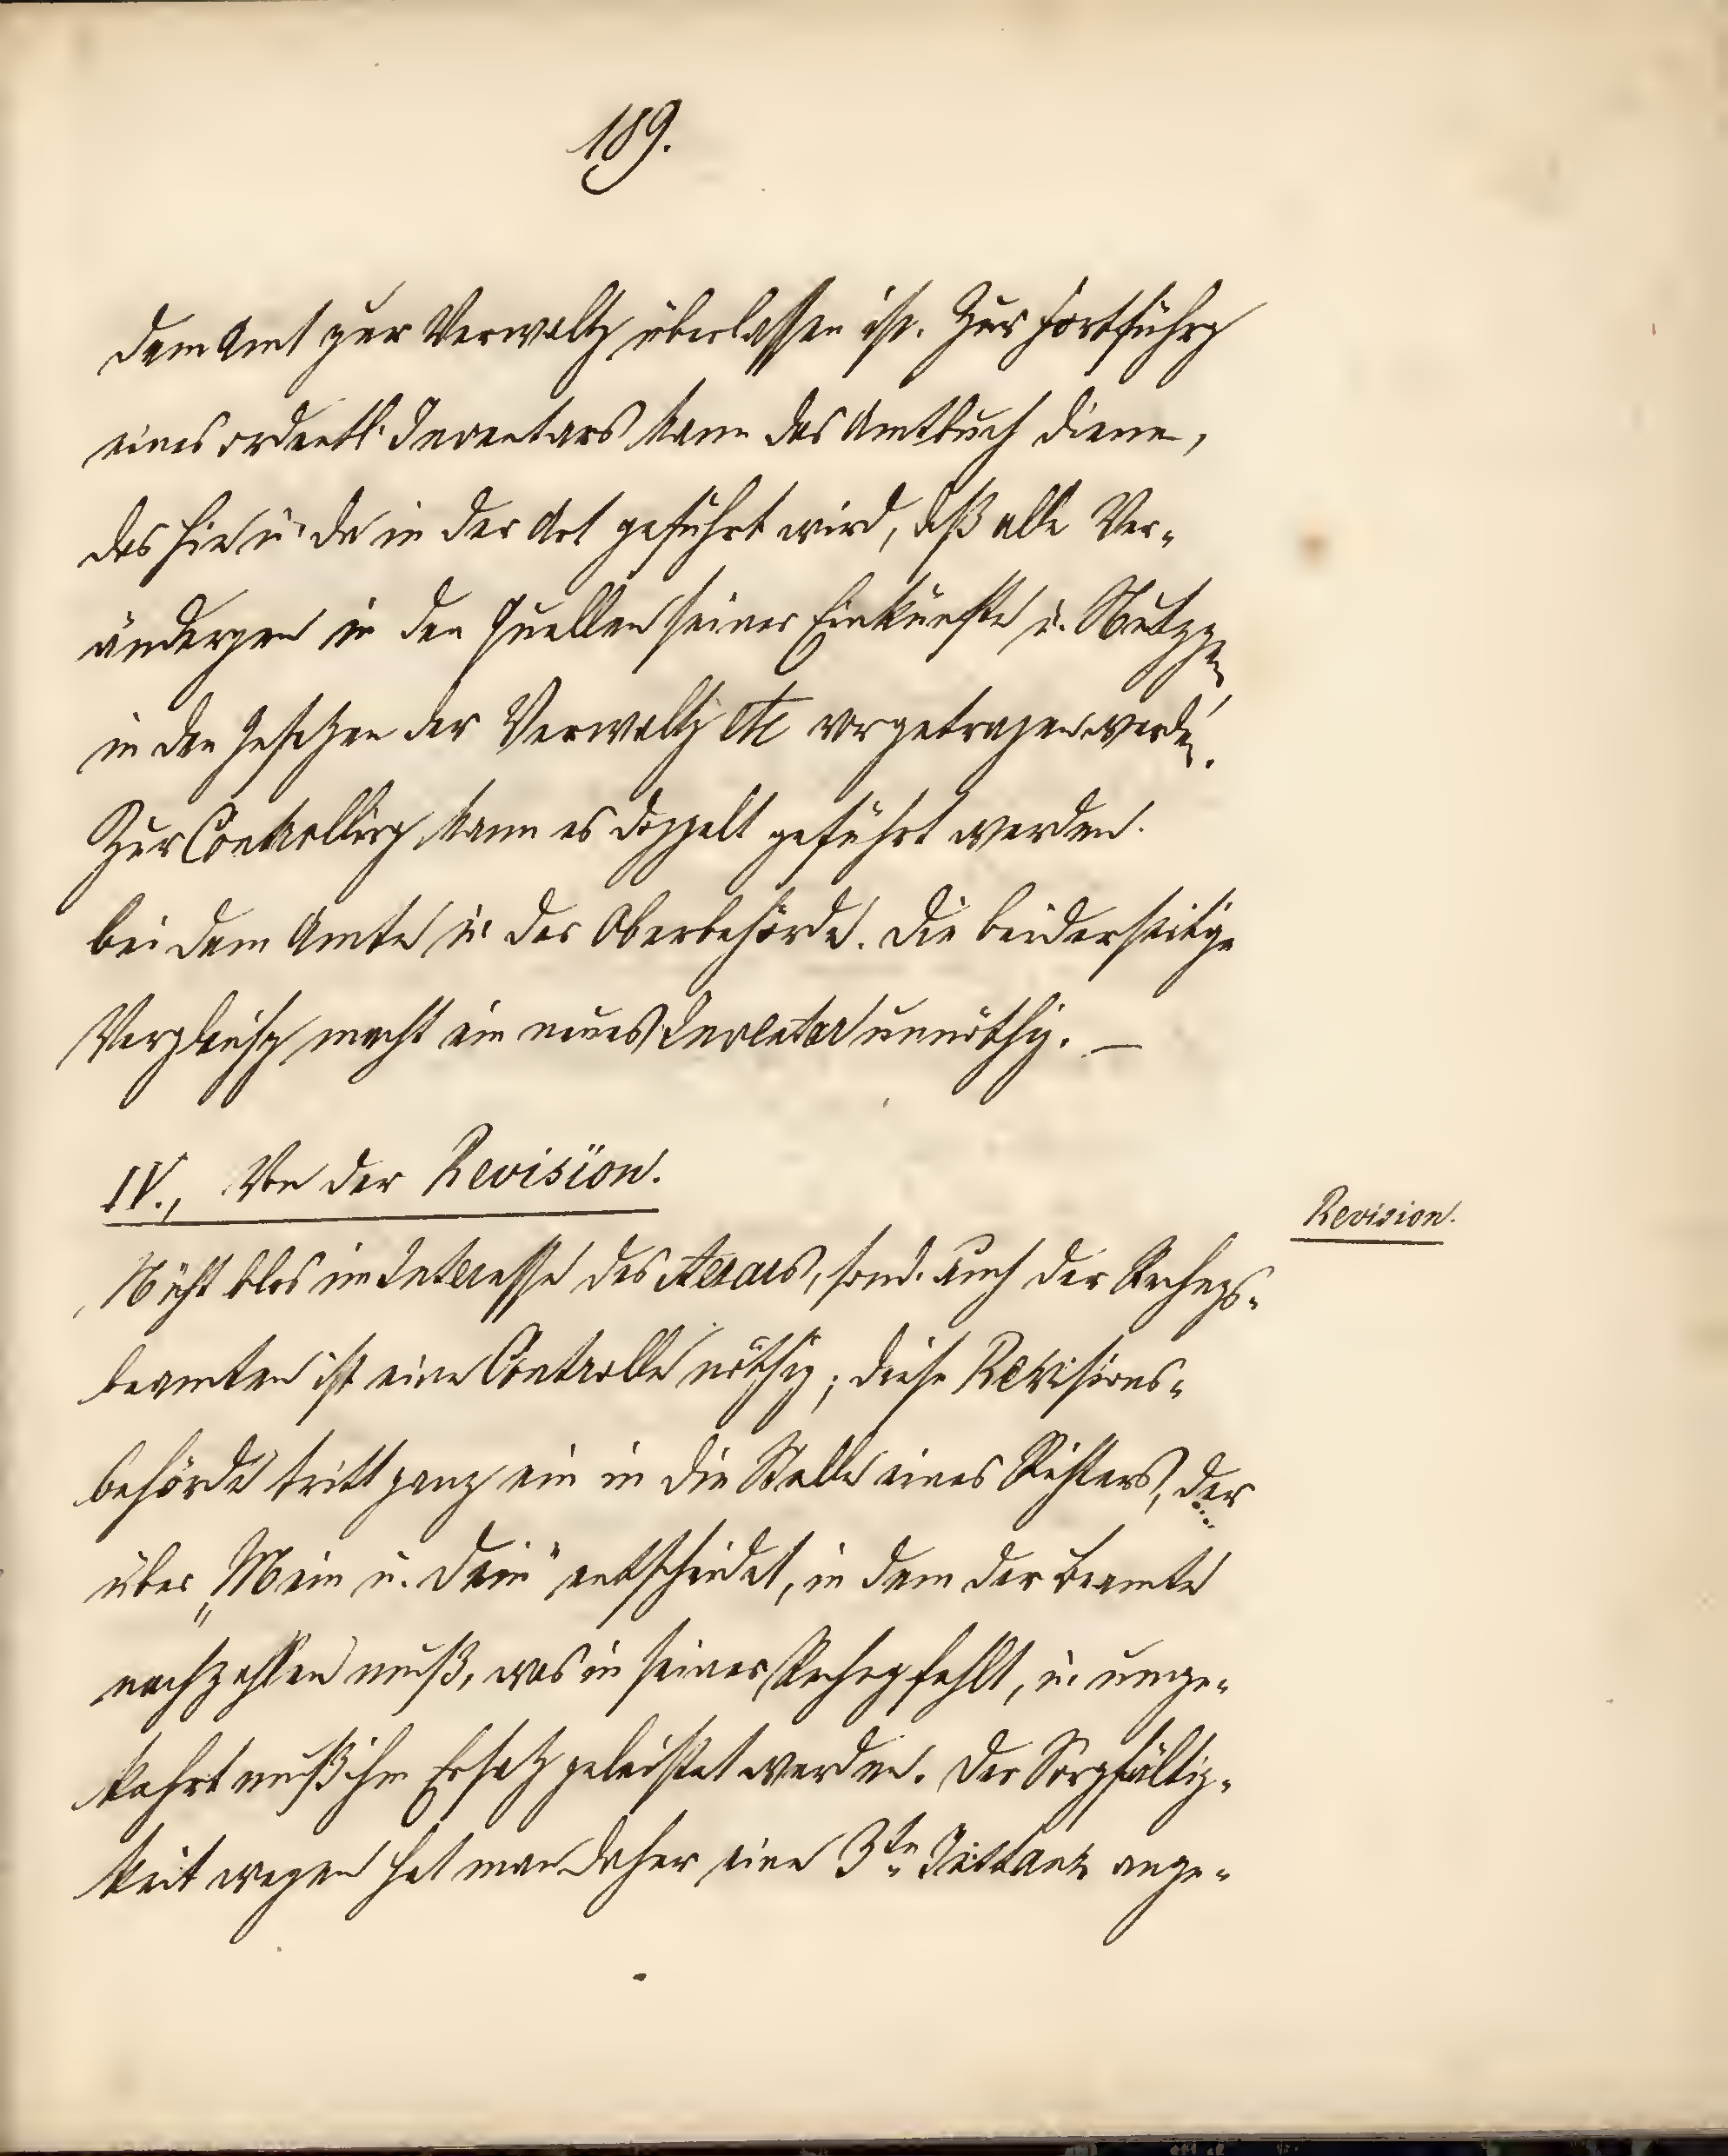 189.
dem Amt zur Verwaltg überlassen ist. Zur Fortführg
eines ordentl. Inventars kann das Amtbuch dienen,
das hie u. da in der Art geführt wird, daß alle Ver-
ändergen in den Quellen seiner Einkünfte u. Nutzgen
in den Gesetzen der Verwaltg etc vorgetragen werden.
Zur Controllirg kann es doppelt geführt werden.
bei dem Amte u. der Oberbehörde. Die beiderseitige
Vergleichg macht ein neues Inventar unnöthig. —
IV., Von der Revision.
Revision.
Nicht blos im Interesse des Aerars, sond. auch der Rechngs-
beamten ist eine Controlle nöthig; diese Revisions-
behörde tritt ganz ein in die Stelle eines Richters, der
über „Mein u. Dein" entscheidet, in dem der Beamte
nachzahlen muß, was in seiner Rechng fehlt, u. umge-
kehrt muß ihm Ersatz geleistet werden. Der Sorgfältig-
keit wegen hat man daher eine 3te Instanz ange-